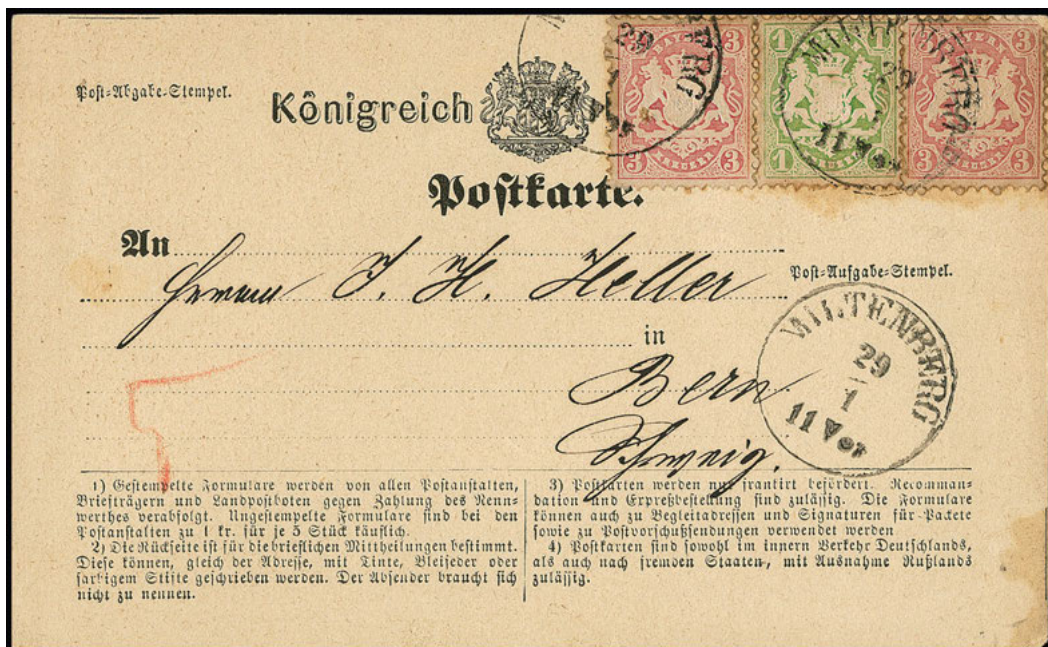 Post-Abgabe-Stempel.
Königreich
Postkarte.
BAYERN
3 3
3 KREUZER 3
1 1
1 KREUZER 1
BAYERN
3 3
3 3
29
11 Vor
29
11 Vor
An
Herrn J. H. Heller
Post-Aufgabe-Stempel.
in
Bern.
Schweiz.
MILTENBERG
29
1
11 Vor
1) Gestempelte Formulare werden von allen Postanstalten,
Briefträgern und Landpostboten gegen Zahlung des Nenn-
werthes verabfolgt. Ungestempelte Formulare sind bei den
Postanstalten zu 1 kr. für je 5 Stück käuflich.
2) Die Rückseite ist für die brieflichen Mittheilungen bestimmt.
Diese können, gleich der Adresse, mit Tinte, Bleifeder oder
farbigem Stifte geschrieben werden. Der Absender braucht sich
nicht zu nennen.
3) Postkarten werden nur frankirt befördert. Recomman-
dation und Expreßbestellung sind zulässig. Die Formulare
können auch zu Begleitadressen und Signaturen für Packete
sowie zu Postvorschußsendungen verwendet werden
4) Postkarten sind sowohl im innern Verkehr Deutschlands,
als auch nach fremden Staaten, mit Ausnahme Rußlands
zulässig.